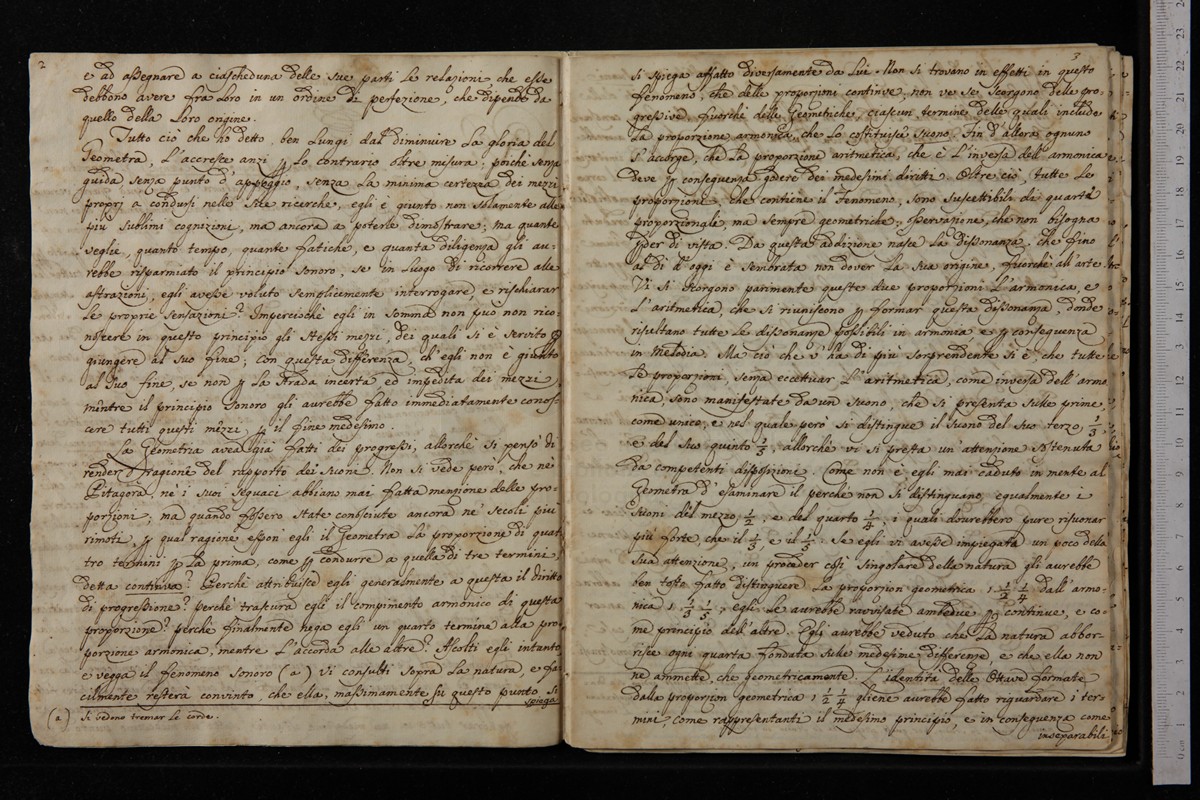 2
e ad assegnare a ciascheduna delle sue parti le relazioni che esse
debbono avere fra loro in un ordine di perfezione, che dipende da
quello della loro origine.
Tutto ciò che ho detto, ben lungi dal diminuire la gloria del
Geometra, l'accresce anzi p lo contrario oltre misura: poichè senza
guida, senza punto d'appoggio, senza la minima certezza dei mezzi
propri a condursi nelle sue ricerche, egli è giunto non solamente alle
più sublimi cognizioni, ma ancora a poterle dimostrare; ma quante
veglie, quanto tempo, quante fatiche, e quanta diligenza gli au-
rebbe risparmiato il principio sonoro, se in luogo di ricorrere alle
astrazioni, egli avesse voluto semplicemente interrogare, e rischiarar
le proprie sensazioni? Imperciochè egli in somma non può non rico-
noscere in questo principio gli stessi mezzi, dei quali si è servito p
giungere al suo fine; con questa differenza, ch'egli non è giunto
al suo fine, se non p la strada incerta, ed impedita dei mezzi,
mentre il principio sonoro gli aurebbe fatto immediatamente conos-
cere tutti questi mezzi p il fine medesimo.
La Geometria avea già fatti dei progressi, allorchè si pensò di
render ragione del rapporto dei suoni. Non si vede però, che nè
Pitagora, nè i suoi seguaci abbiano mai fatta menzione delle pro-
porzioni; ma quando fossero state conosciute ancora ne' secoli più
rimoti, p qual ragione espon egli il Geometra la proporzione di quat
tro termini p la prima, come p condurre a quella di tre termini,
detta continua? Perchè attribuisce egli generalmente a questa il diritto
di progressione? perchè trascura egli il compimento armonico di questa
proporzione? perchè finalmente nega egli un quarto termine alla pro-
porzione armonica, mentre l'accorda alle altre? Ascolti egli intanto
e vegga il fenomeno sonoro (a) Vi consulti sopra la natura, e fa
cilmente resterà convinto, che ella, massimamente su questo punto si
spiega
(a) Si vedono tremar le corde.
3
si spiega affatto diversamente da lui. Non si trovano in effetti in questo
fenomeno, che delle proporzioni continue, non ve se scorgono delle pro-
gressive, fuorchè delle Geometriche, ciascun termine delle quali include
la proporzione armonica, che lo costituisce suono. Fin d'allora ognuno
s'accorge, che la proporzione aritmetica, che è l'inversa dell'armonica
deve p conseguenza godere dei medesimi diritti. Oltre ciò tutte le
proporzioni, che contiene il Fenomeno, sono suscettibili di quarta
proporzionale, ma sempre geometriche, osservazione, che non bisogna
pder di vista. Da questa addizione nasce la dissonanza, che fino
al dì d'oggi è sembrata non dover la sua origine, fuorchè all'arte.
Vi si scorgono parimente queste due proporzioni l'armonica, e
l'aritmetica, che si riuniscono p formar questa dissonanza, donde
risultano tutte le dissonanze possibili in armonia e p conseguenza
in melodia. Ma ciò che v'ha di più sorprendente si è, che tutte
le proporzioni, senza eccettuar l'aritmetica, come inversa dell'armo
nica, sono manifestate da un suono, che si presenta sulle prime,
come unico, e nel quale però si distingue il suono del suo terzo, 1/3
e del suo quinto 1/5, allorchè vi si presta un'attenzione sostenuta
da competenti disposizioni. Come non è egli mai caduto in mente al
Geometra d'esaminare il perchè non si distinguano egualmente i
suoni del mezzo, 1/2, e del quarto 1/4, i quali dourebbero pure risuonar
più forte, che il 1/3, e il 1/5. Se egli vi avesse impiegata un poco della
sua attenzione, un proceder così singolare della natura gli aurebbe
ben tosto fatto distinguere la proporzion geometrica 1 1/2 1/4 dall'armo-
nica 1 1/3 1/5, egli le aurebbe ravvisate ambedue p continue, e co-
me principio dell'altre. Egli aurebbe veduto che la natura abbor-
risce ogni quarta fondata sulle medesime differenze, e che ella non
ne ammette, che geometricamente. L'identità delle Ottave formate
dalla proporzion Geometrica 1 1/2 1/4 gliene aurebbe fatto riguardare i ter-
mini, come rappresentanti il medesimo principio, e in conseguenza come
inseparabili